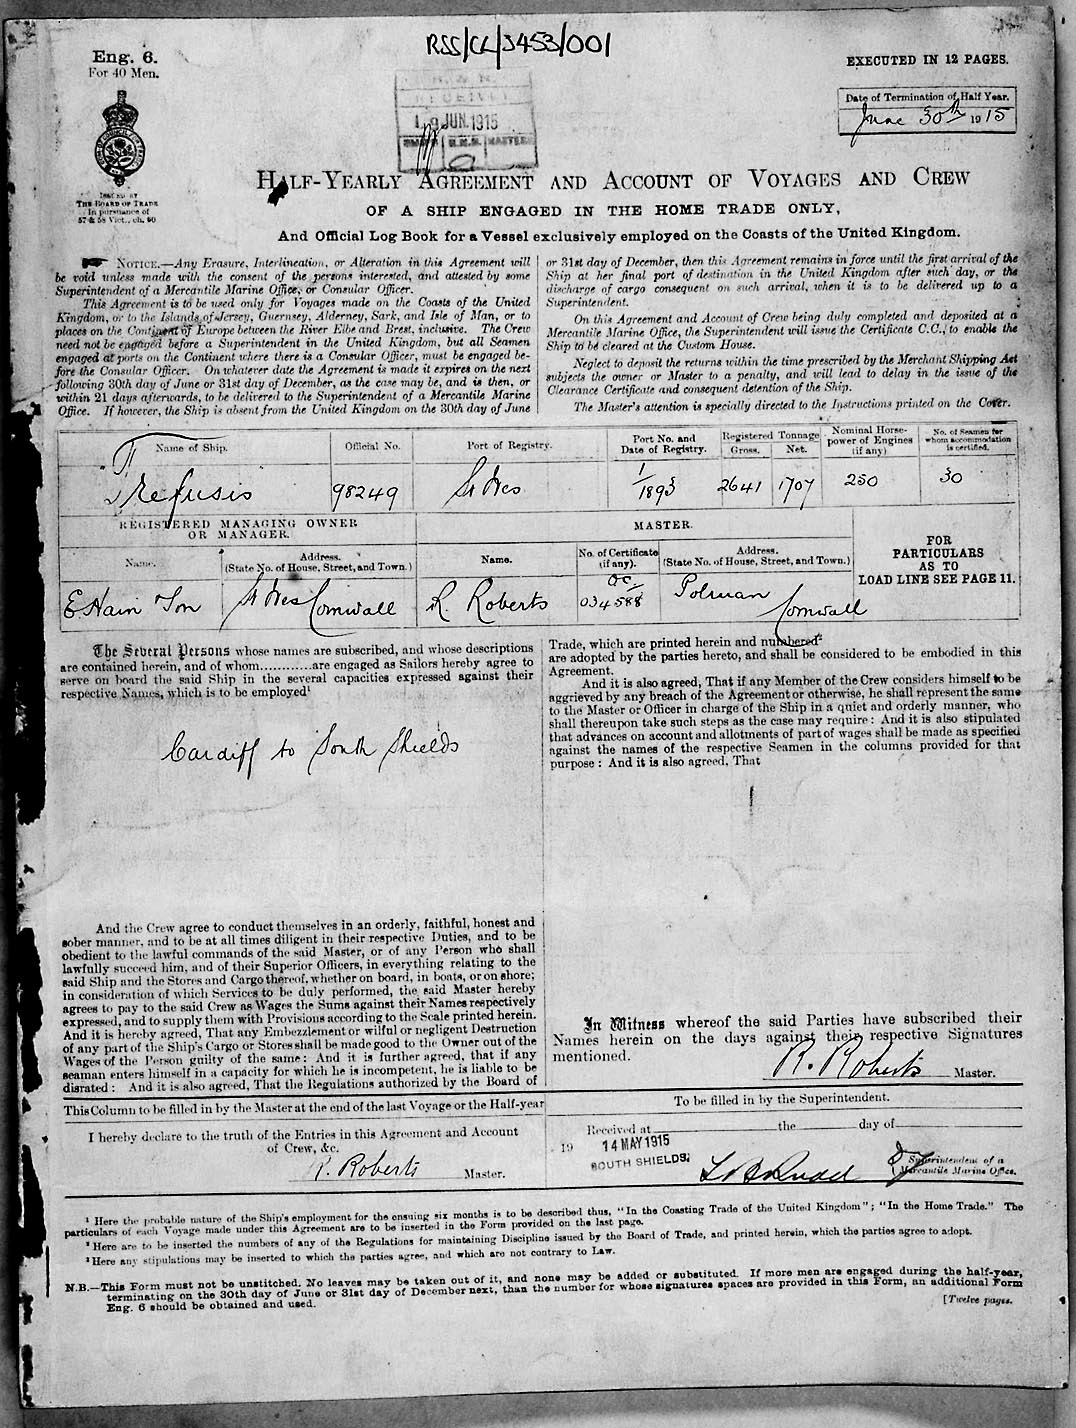 RSS/CL/3453/001
Eng. 6.
For 40 Men.
EXECUTED IN 12 PAGES.
RECEIVED
JUN. 1915
Date of Termination of Half Year.
June 30th 1915
ISSUED BY
THE BOARD OF TRADE
In pursuance of
57 & 58 Vict., ch. 60
HALF-YEARLY AGREEMENT AND ACCOUNT OF VOYAGES AND CREW
OF A SHIP ENGAGED IN THE HOME TRADE ONLY,
And Official Log Book for a Vessel exclusively employed on the Coasts of the United Kingdom.
NOTICE.—Any Erasure, Interlineation, or Alteration in this Agreement will
be void unless made with the consent of the persons interested, and attested by some
Superintendent of a Mercantile Marine Office, or Consular Officer.
This Agreement is to be used only for Voyages made on the Coasts of the United
Kingdom, or to the Islands of Jersey, Guernsey, Alderney, Sark, and Isle of Man, or to
places on the Continent of Europe between the River Elbe and Brest, inclusive. The Crew
need not be engaged before a Superintendent in the United Kingdom, but all Seamen
engaged at ports on the Continent where there is a Consular Officer, must be engaged be-
fore the Consular Officer. On whatever date the Agreement is made it expires on the next
following 30th day of June or 31st day of December, as the case may be, and is then, or
within 21 days afterwards, to be delivered to the Superintendent of a Mercantile Marine
Office. If however, the Ship is absent from the United Kingdom on the 30th day of June
or 31st day of December, then this Agreement remains in force until the first arrival of the
Ship at her final port of destination in the United Kingdom after such day, or the
discharge of cargo consequent on such arrival, when it is to be delivered up to a
Superintendent.
On this Agreement and Account of Crew being duly completed and deposited at a
Mercantile Marine Office, the Superintendent will issue the Certificate C.C., to enable the
Ship to be cleared at the Custom House.
Neglect to deposit the returns within the time prescribed by the Merchant Shipping Act
subjects the owner or Master to a penalty, and will lead to delay in the issue of the
Clearance Certificate and consequent detention of the Ship.
The Master's attention is specially directed to the Instructions printed on the Cover.
Name of Ship. Official No. Port of Registry. Port No. and Date of Registry. Registered Tonnage Gross. Net. Nominal Horse-power of Engines (if any) No. of Seamen for whom accommodation is certified.
"Trefusis" 98249 St Ives 1/1893 2641 1707 250 30
REGISTERED MANAGING OWNER
OR MANAGER.
MASTER.
FOR
PARTICULARS
AS TO
LOAD LINE SEE PAGE 11.
Name. Address. (State No. of House, Street, and Town.) Name. No. of Certificate (if any). Address. (State No. of House, Street, and Town.)
E Hain & Son St Ives Cornwall R. Roberts OC 034588 Polruan Cornwall
The Several Persons whose names are subscribed, and whose descriptions
are contained herein, and of whom............are engaged as Sailors hereby agree to
serve on board the said Ship in the several capacities expressed against their
respective Names, which is to be employed¹
Cardiff to South Shields
And the Crew agree to conduct themselves in an orderly, faithful, honest and
sober manner, and to be at all times diligent in their respective Duties, and to be
obedient to the lawful commands of the said Master, or of any Person who shall
lawfully succeed him, and of their Superior Officers, in everything relating to the
said Ship and the Stores and Cargo thereof, whether on board, in boats, or on shore;
in consideration of which Services to be duly performed, the said Master hereby
agrees to pay to the said Crew as Wages the Sums against their Names respectively
expressed, and to supply them with Provisions according to the Scale printed herein.
And it is hereby agreed, That any Embezzlement or wilful or negligent Destruction
of any part of the Ship's Cargo or Stores shall be made good to the Owner out of the
Wages of the Person guilty of the same: And it is further agreed, that if any
seaman enters himself in a capacity for which he is incompetent, he is liable to be
disrated: And it is also agreed, That the Regulations authorized by the Board of
Trade, which are printed herein and numbered²
are adopted by the parties hereto, and shall be considered to be embodied in this
Agreement.
And it is also agreed, That if any Member of the Crew considers himself to be
aggrieved by any breach of the Agreement or otherwise, he shall represent the same
to the Master or Officer in charge of the Ship in a quiet and orderly manner, who
shall thereupon take such steps as the case may require: And it is also stipulated
that advances on account and allotments of part of wages shall be made as specified
against the names of the respective Seamen in the columns provided for that
purpose: And it is also agreed, That
In Witness whereof the said Parties have subscribed their
Names herein on the days against their respective Signatures
mentioned.
R. Roberts Master.
This Column to be filled in by the Master at the end of the last Voyage or the Half-year
I hereby declare to the truth of the Entries in this Agreement and Account
of Crew, &c.
R. Roberts Master.
To be filled in by the Superintendent.
Received at the day of
19 14 MAY 1915
SOUTH SHIELDS.
Superintendent of a
Mercantile Marine Office.
¹ Here the probable nature of the Ship's employment for the ensuing six months is to be described thus, "In the Coasting Trade of the United Kingdom"; "In the Home Trade." The
particulars of each Voyage made under this Agreement are to be inserted in the Form provided on the last page.
² Here are to be inserted the numbers of any of the Regulations for maintaining Discipline issued by the Board of Trade, and printed herein, which the parties agree to adopt.
³ Here any stipulations may be inserted to which the parties agree, and which are not contrary to Law.
N.B.—This Form must not be unstitched. No leaves may be taken out of it, and none may be added or substituted. If more men are engaged during the half-year,
terminating on the 30th day of June or 31st day of December next, than the number for whose signatures spaces are provided in this Form, an additional Form
Eng. 6 should be obtained and used.
[Twelve pages.